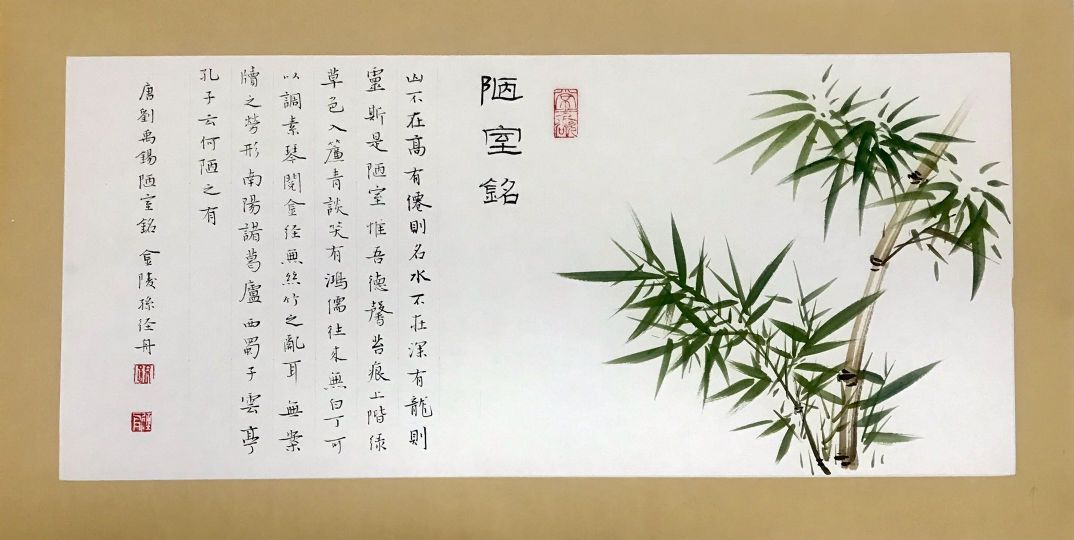 陋室銘
山不在高有僊則名水不在深有龍則
靈斯是陋室惟吾德馨苔痕上階緑
草色入簾青談笑有鴻儒往來無白丁可
以調素琴閱金経無絲竹之亂耳無案
牘之勞形南陽諸葛廬西蜀子雲亭
孔子云何陋之有
唐劉禹錫陋室銘 金陵孫径丹